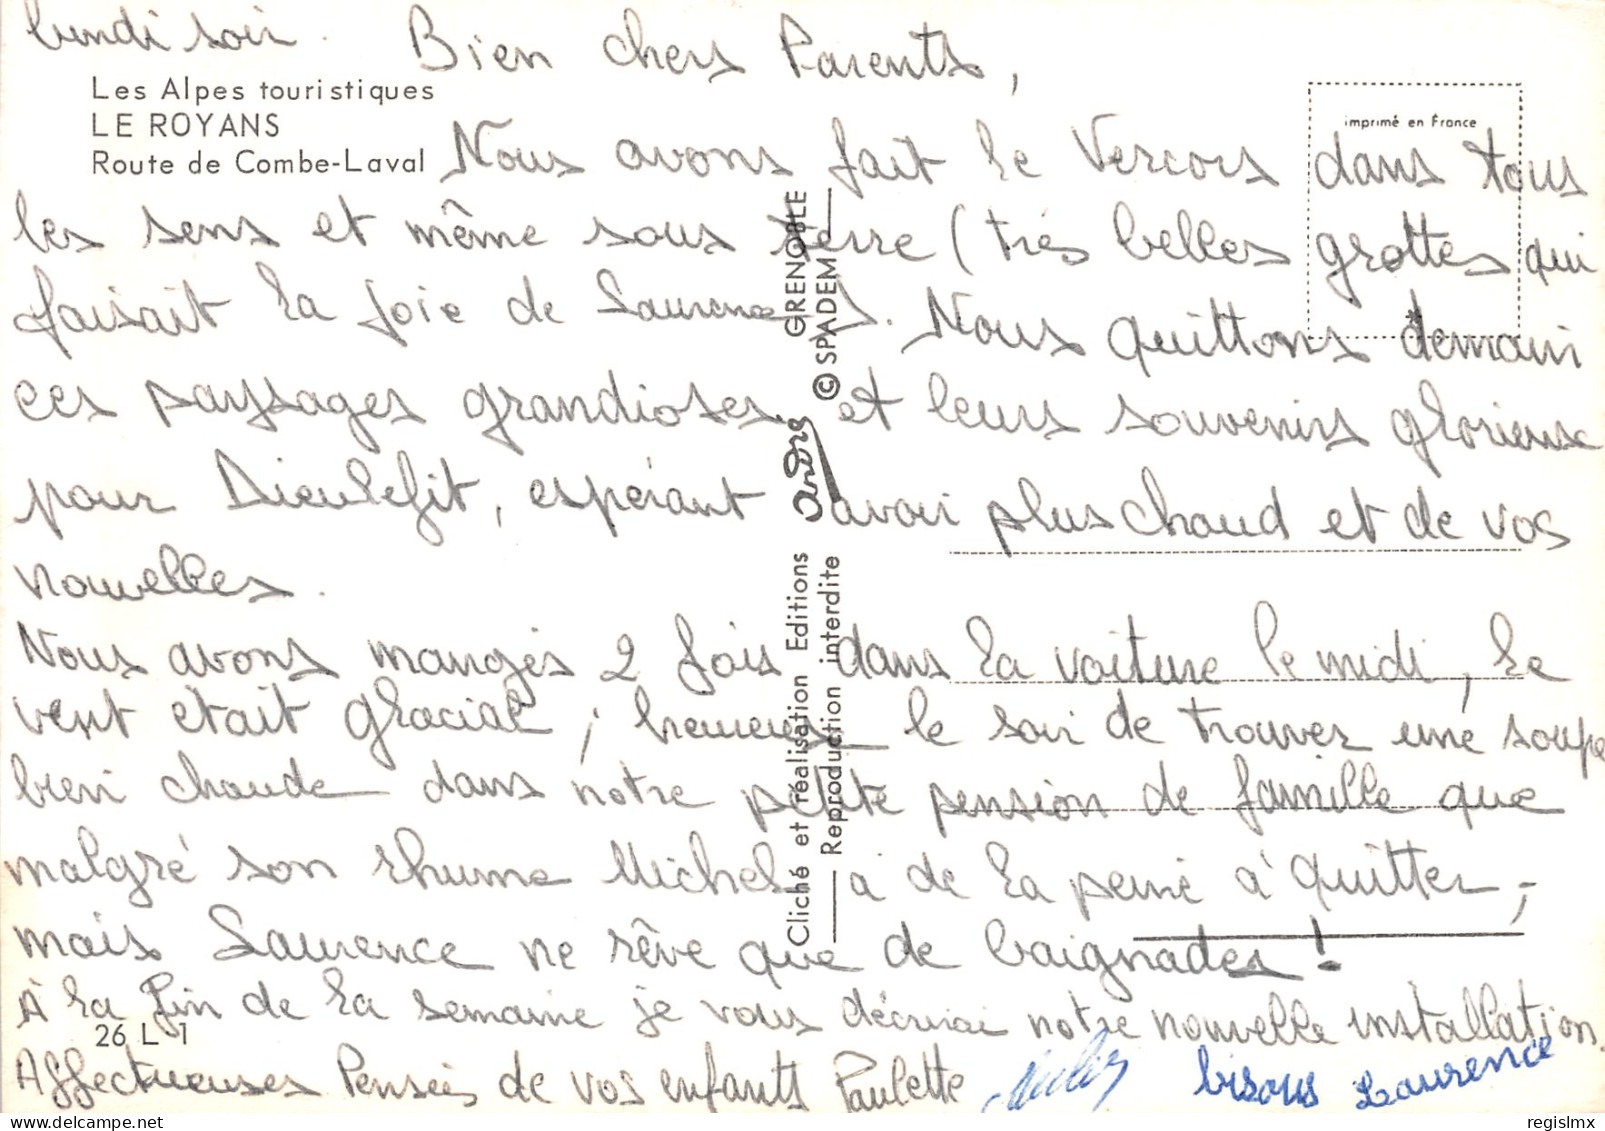 lundi soir. Bien chers Parents,
Les Alpes touristiques
LE ROYANS
Route de Combe-Laval
imprimé en France
Nous avons fait le Vercors dans tous
les sens et même sous terre (très belles grottes qui
faisait la joie de Laurence). Nous quittons demain
ces paysages grandioses et leurs souvenirs glorieux
pour Dieulefit, espérant avoir plus chaud et de vos
nouvelles.
Nous avons mangés 2 fois dans la voiture le midi, le
vent était glacial ; heureux le soir de trouver une soupe
bien chaude dans notre petite pension de famille que
malgré son rhume Michel a de la peine à quitter,
mais Laurence ne rêve que de baignades !
A la fin de la semaine je vous décrirai notre nouvelle installation.
26 L 1
Affectueuses Pensées de vos enfants Paulette
bisous Laurence
Cliché et réalisation Editions André GRENOBLE
Reproduction interdite © SPADEM
regislmx